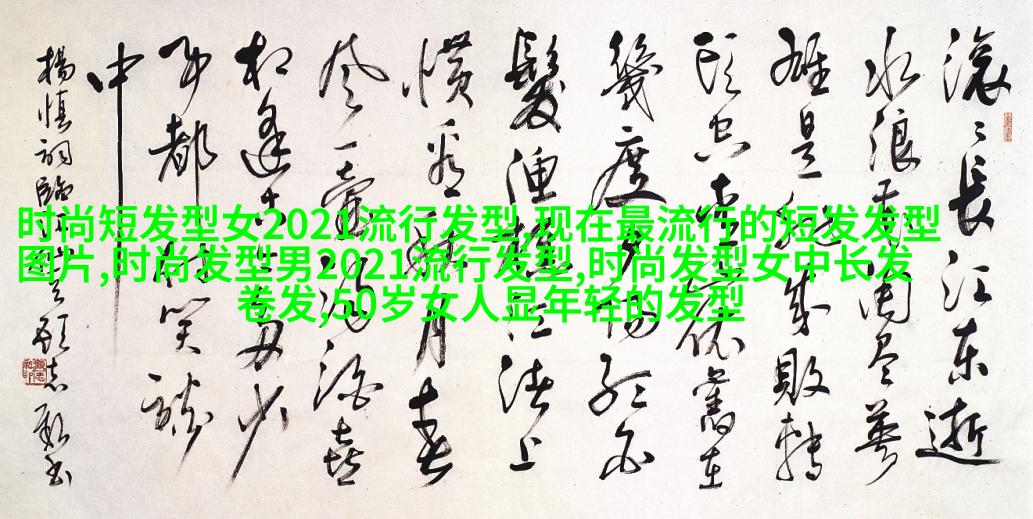 滚〻長江东逝
水浪花淘尽英
雄是非成敗轉
頭空青山依舊在
幾度夕陽紅白
髮漁樵江渚上
慣看秋月春
風一壺濁酒喜
相逢古今多少
事都付笑談
中
楊慎詞臨江仙
时尚短发型女2021流行发型,现在最流行的短发发型
图片,时尚发型男2021流行发型,时尚发型女中长发
卷发,50岁女人显年轻的发型